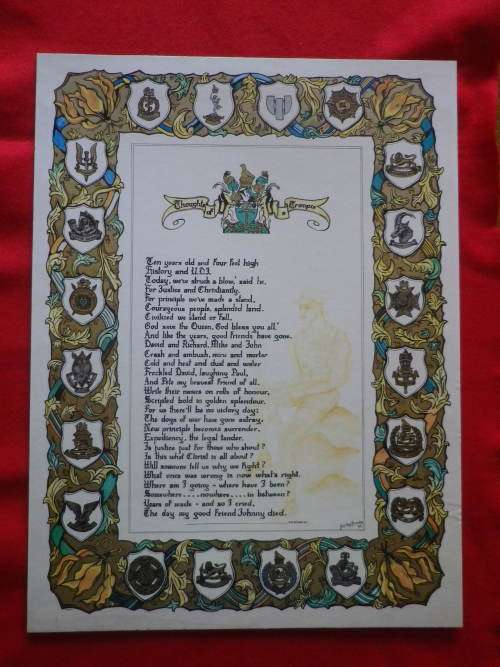 Thoughts of a Trooper
Ten years old and four feet high
History and U.D.I.
'Today, we've struck a blow,' said he,
For Justice and Christianity.
For principle we've made a stand,
Courageous people, splendid land.
Civilized we stand or fall,
God save the Queen, God bless you all.'
And like the years, good friends have gone,
David and Richard, Mike and John
Crash and ambush, mine and mortar
Cold and heat and dust and water
Freckled David, laughing Paul,
And Pete my bravest friend of all.
Write their names on rolls of honour,
Scripted bold in golden splendour.
For us there'll be no victory day:
The dogs of war have gone astray.
Now principle becomes surrender,
Expediency, the legal tender.
Is justice just for those who shout?
Is this what Christ is all about?
Will someone tell us why we fight?
What once was wrong is now what's right.
Where am I going - where have I been?
Somewhere....nowhere....in between?
Years of made - and so I cried,
The day my good friend Johnny died.